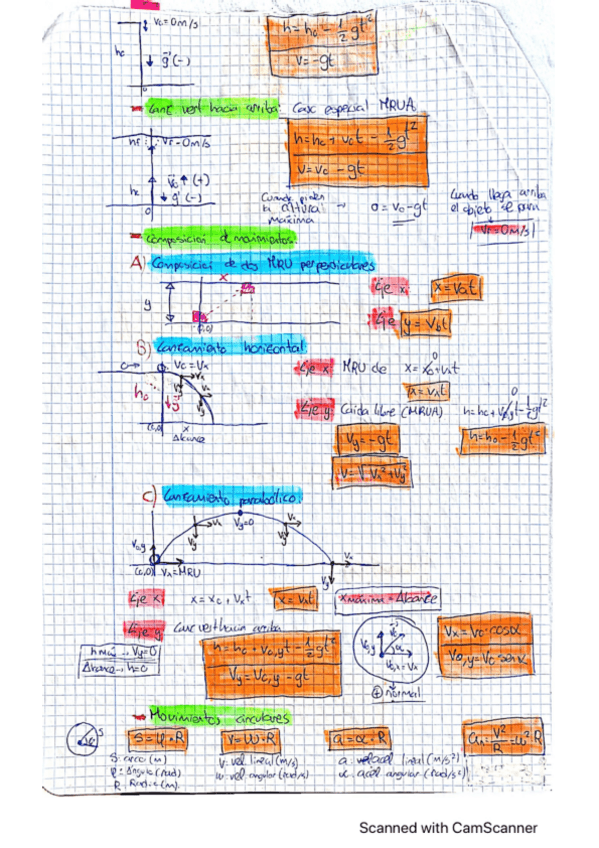 v₀=0m/s
h = h₀ - 1/2 gt²
h₀
g (-)
v = -gt
0
Lanz. vert. hacia arriba: Caso especial MRUA
hf vf=0m/s
h = h₀ + v₀t - 1/2 gt²
v = v₀ - gt
v₀ (+)
h₀ g (-)
0
Cuando piden la altura máxima → 0 = v₀ - gt
Cuando llega arriba el objeto se para
vf = 0m/s
Composición de movimientos.
A) Composición de dos MRU perpendiculares
x
y
(0,0)
Eje x x = v₀t
Eje y = vbt
B) Lanzamiento horizontal
v₀ = vx
Eje x MRU de x = x₀ + vxt
0
x = vxt
h₀
g
Eje y Caída libre (MRUA) h = h₀ + v₀t - 1/2 gt²
0
(0,0) x
Alcance
vy = -gt
h = h₀ - 1/2 gt²
v = √vx² + vy²
C) Lanzamiento parabólico.
vy=0
vx
vy
v₀,y
(0,0) vx = MRU
Eje x x = x₀ + vxt x = vxt xmáxima = Alcance
Eje y Lanz vert hacia arriba
hmáx → vy=0
Alcance → h=0
h = h₀ + v₀,yt - 1/2 gt²
vy = v₀,y - gt
v₀,y v₀ α
v₀,x = vx
⊕ normal
vx = v₀·cosα
v₀,y = v₀ senα
Movimientos circulares
S
φ
S = φ·R
v = ω·R
a = α·R
an = v²/R = ω²·R
S: arco (m)
φ: Ángulo (rad)
R: Radio (m)
v: vel lineal (m/s)
ω: vel angular (rad/s)
a: acel lineal (m/s²)
α: acel angular (rad/s²)
Scanned with CamScanner